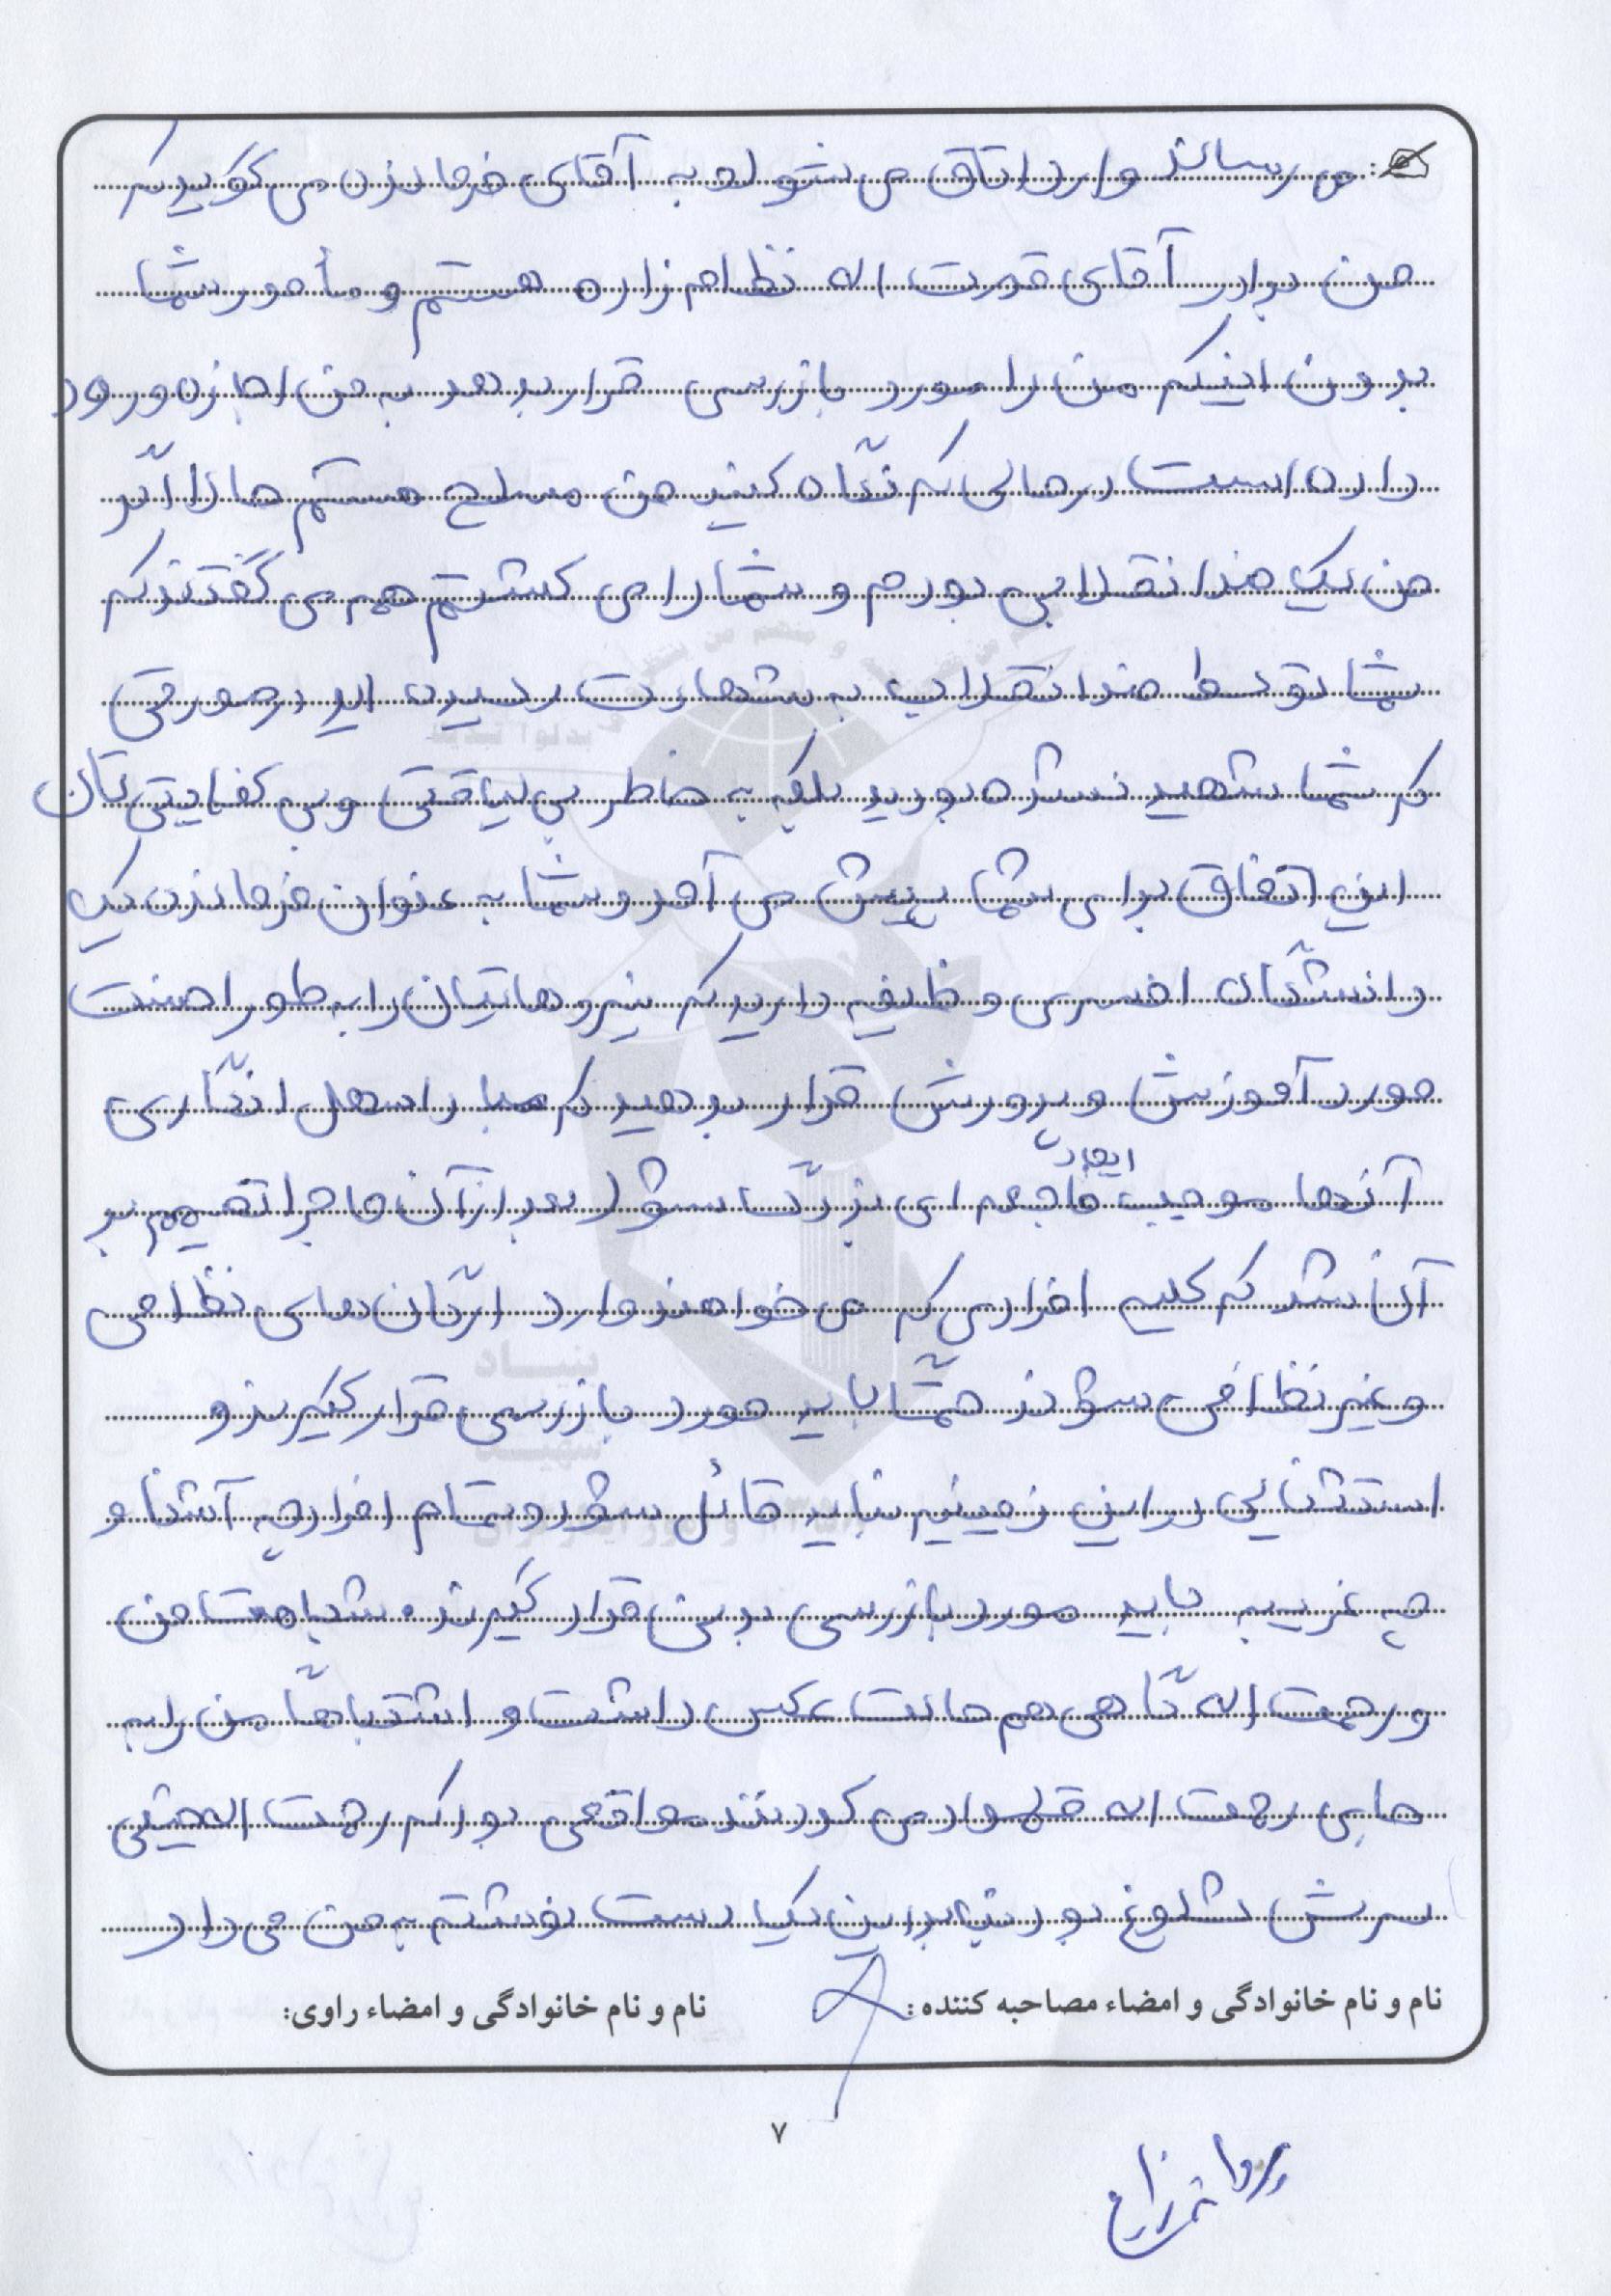 می رساند وارد اتاق می شود و به آقای فرمانده می گوید که
من برادر آقای قدرت اله نظام زاده هستم و مأمور شما
بدون اینکه من را مورد بازرسی قرار بدهد به من اجازه ورود
داده است در حالی که نگاه کنید من مسلح هستم حالا اگر
من یک ضد انقلابی بودم و شما را می کشتم همه می گفتند که
شما توسط ضد انقلاب به شهادت رسیده اید در صورتی
که شما شهید نشده بودید بلکه به خاطر بی لیاقتی و بی کفایتی تان
این اتفاق برای شما پیش می آمد و شما به عنوان فرمانده یک
دانشگاه افسری وظیفه دارید که نیروهایتان را به طور احسنت
مورد آموزش و پرورش قرار بدهید که مبادا سهل انگاری
آنها موجب ایجاد فاجعه ای بزرگ شود بعد از آن ماجرا تصمیم بر
آن شد که کلیه افرادی که می خواهند وارد ارگان های نظامی
و غیر نظامی شوند همگی باید مورد بازرسی قرار گیرند و
استثنایی در این زمینه نباید قائل شود و تمام افراد چه آشنا و
چه غریبه باید مورد بازرسی بدنی قرار گیرند. شباهت من
و رحمت اله گاهی هم حالت عکس داشت و اشتباهاً من را به
جای رحمت اله قلمداد می کردند مواقعی بود که رحمت اله خیلی
سرش شلوغ بود بنابراین یک دست نوشته به من می داد
نام و نام خانوادگی و امضاء مصاحبه کننده: نام و نام خانوادگی و امضاء راوی:
۷